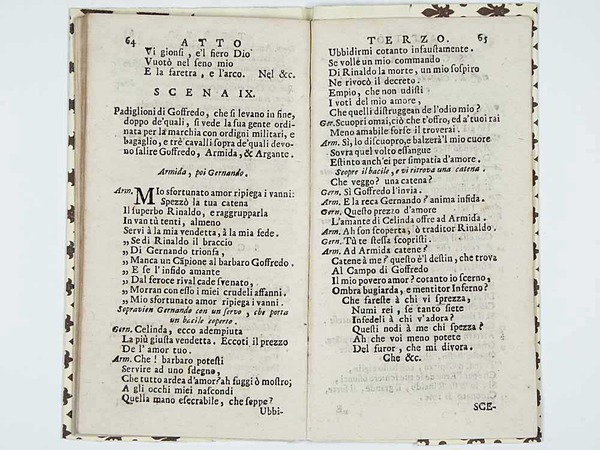 64 ATTO
Vi gionsi, e'l fiero Dio
Vuotò nel seno mio
E la faretra, e l'arco. Nel &c.
SCENA IX.
Padiglioni di Goffredo, che si levano in fine,
doppo de'quali, si vede la sua gente ordi-
nata per la marchia con ordigni militari, e
bagaglio, e trè cavalli sopra de'quali devo-
no salire Goffredo, Armida, & Argante.
Armida, poi Gernando.
Arm. Mio sfortunato amor ripiega i vanni:
Spezzò la tua catena
Il superbo Rinaldo, e raggrupparla
In van tù tenti, almeno
Servi à la mia vendetta, à la mia fede.
„ Se di Rinaldo il braccio
„ Di Gernando trionfa,
„ Manca un Cāpione al barbaro Goffredo.
„ E se l'infido amante
„ Dal feroce rival cade svenato,
„ Morran con essò i miei crudeli affanni.
„ Mio sfortunato amor ripiega i vanni.
Sopravien Gernando con un servo, che porta
un bacile coperto.
Gern. Celinda, ecco adempiuta
La più giusta vendetta. Eccoti il prezzo
De l'amor tuo.
Arm. Che! barbaro potesti
Servire ad uno sdegno,
Che tutto ardea d'amor? ah fuggi ò mostro;
A gli occhi miei nascondi
Quella mano esecrabile, che seppe?
Ubbi-
TERZO. 65
Ubbidirmi cotanto infaustamente.
Se volle un mio commando
Di Rinaldo la morte, un mio sospiro
Ne rivocò il decreto.
Empio, che non udisti
I voti del mio amore,
Che quelli distruggean de l'odio mio?
Ger. Scuopri omai, ciò che t'offro, ed a'tuoi rai
Meno amabile forse il troverai.
Arm. Sì, lo discuopro, e balzerà'l mio cuore
Sovra quel volto essangue
Estinto anch'ei per simpatia d'amore.
Scopre il bacile, e vi ritrova una catena.
Che veggo? una catena?
Gern. Sì Goffredo l'invia.
Arm. E la reca Gernando? anima infida.
Gern. Questo prezzo d'amore
L'amante di Celinda offre ad Armida.
Arm. Ah son scoperta, ò traditor Rinaldo.
Gern. Tù te stessa scopristi.
Arm. Ad Armida catene?
Catene à me? questo è'l destin, che trova
Al Campo di Goffredo
Il mio povero amor? cotanto io scerno,
Ombra bugiarda, e mentitor Inferno?
Che fareste à chi vi sprezza,
Numi rei, se tanto siete
Infedeli à chi v'adora?
Questi nodi à me chi spezza?
Ah che voi meno potete
Del furor, che mi divora.
Che &c.
SCE-